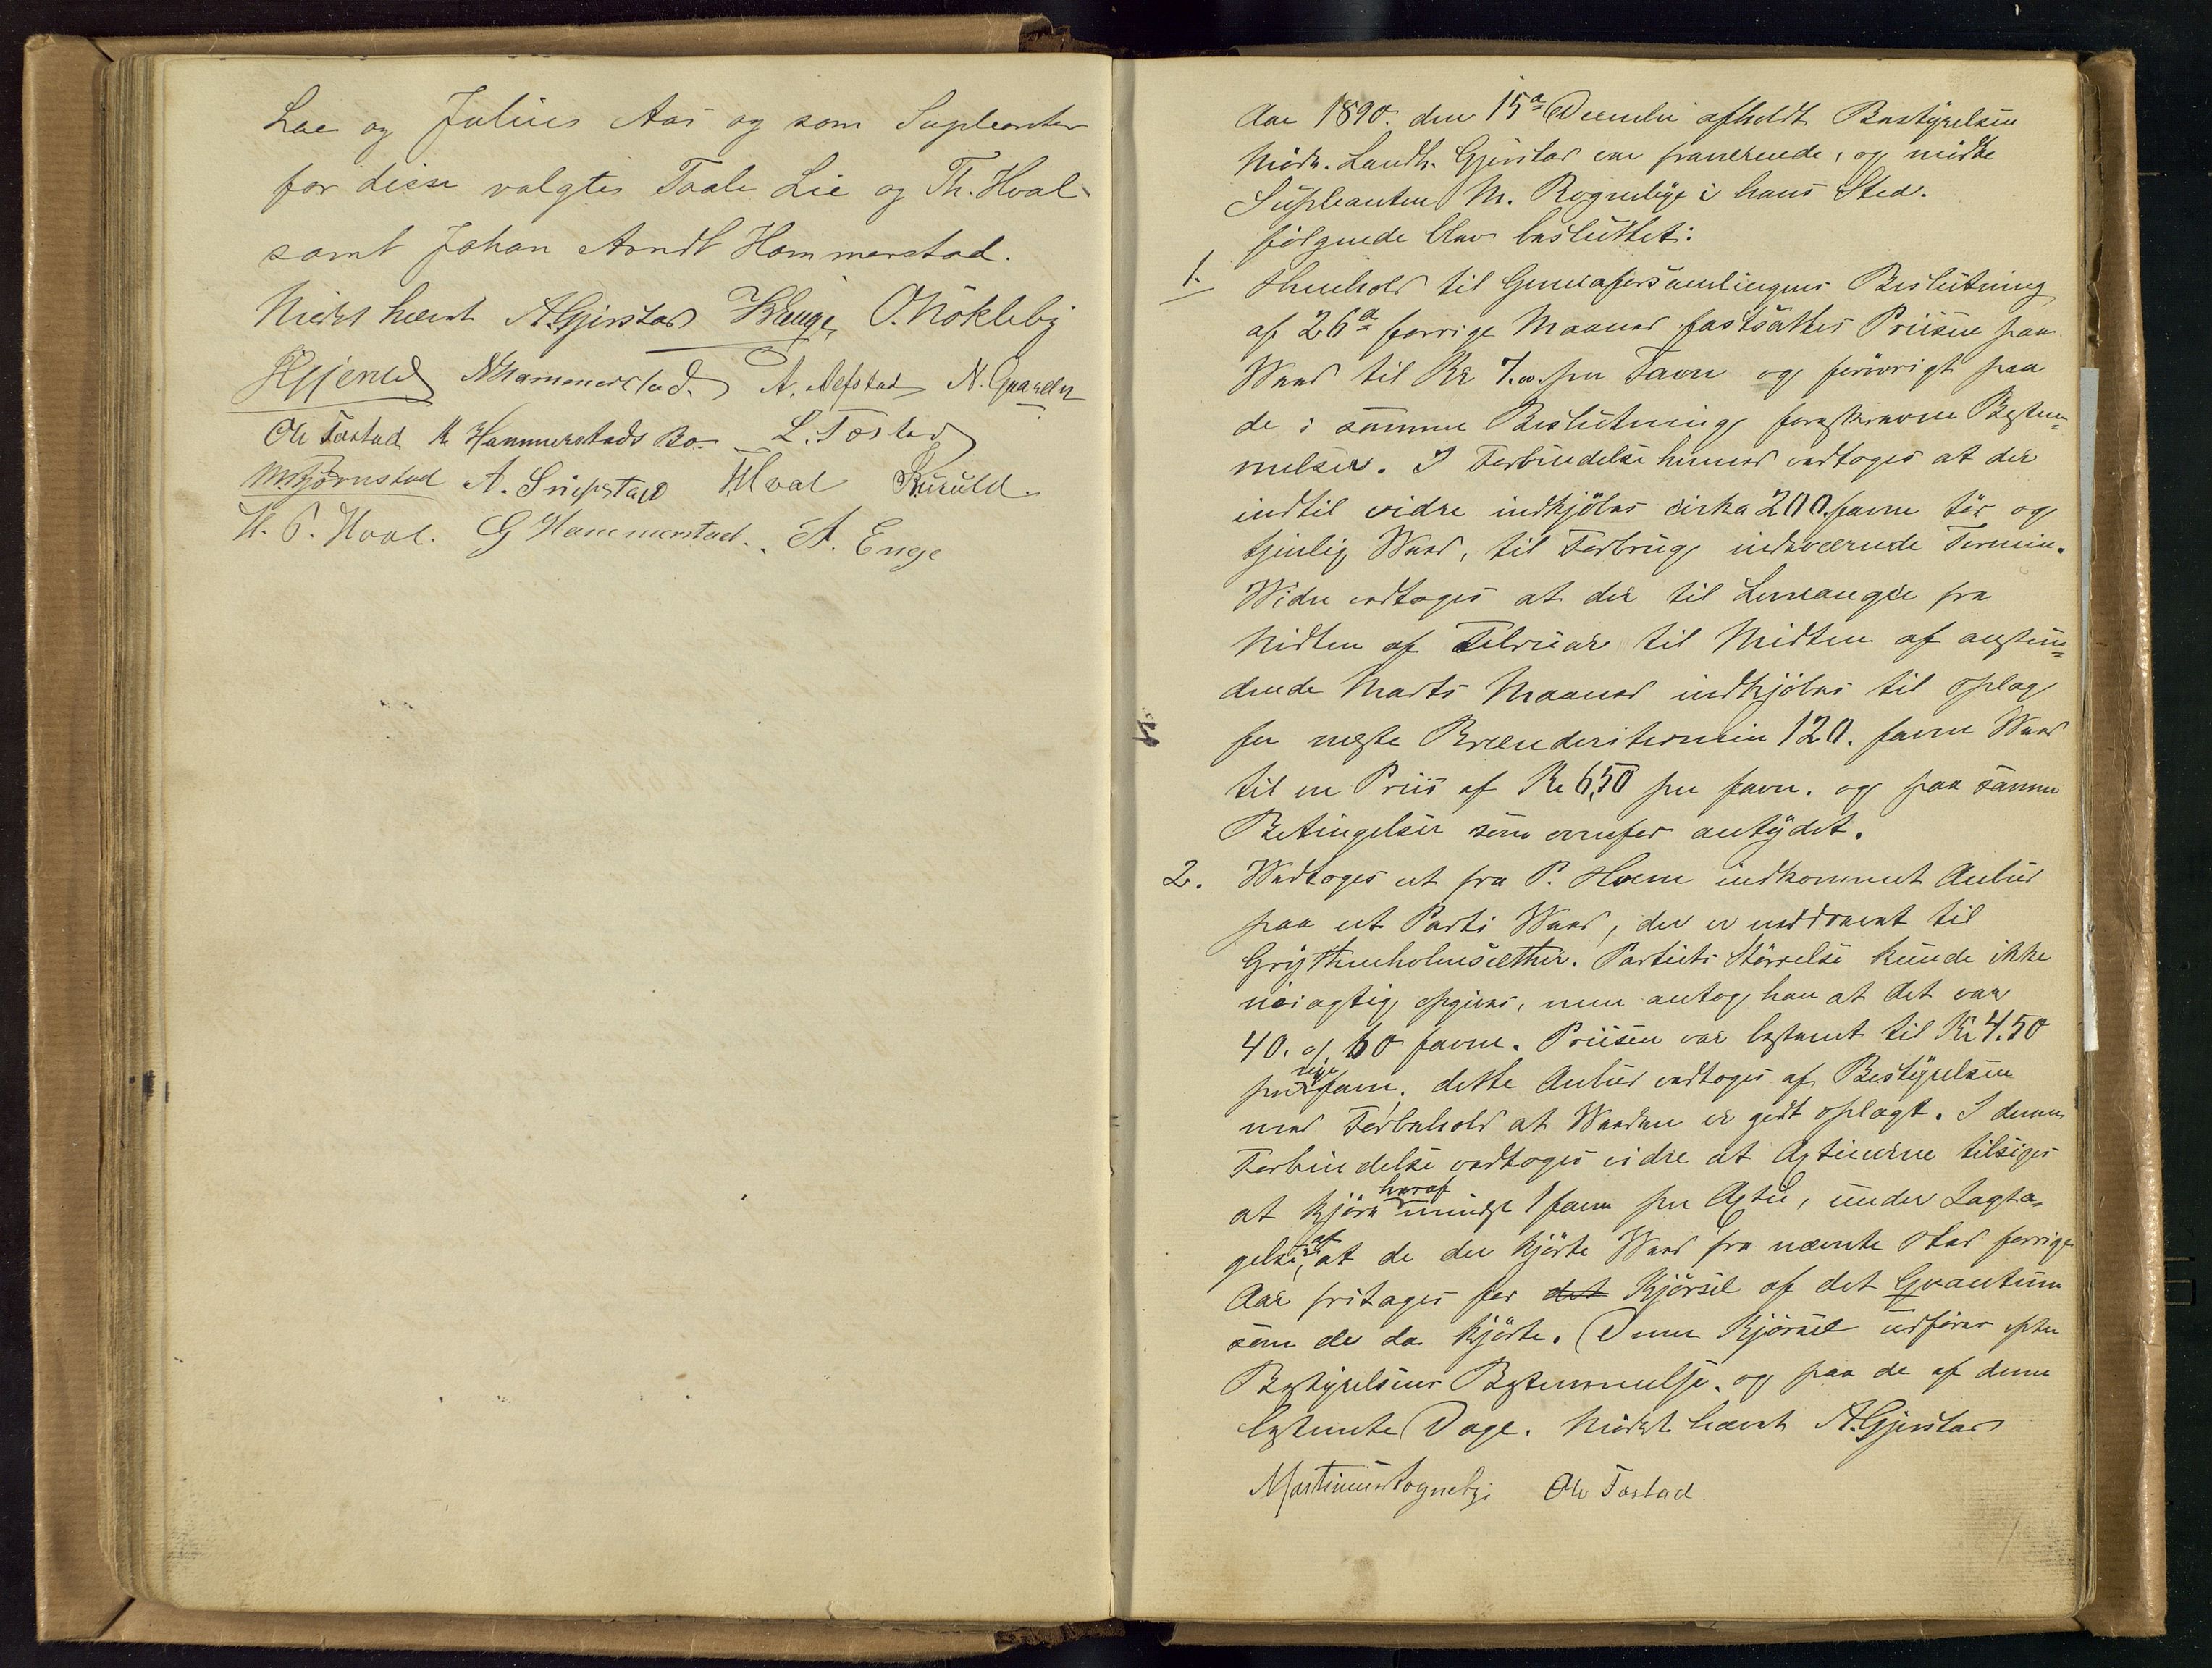 Lae og Julius Aas og som Supleanter
for disse valgtes Taale Lie og Th. Hval
samt Johan Arndt Hammerstad.
Mødet hævet A. Gjerstad K Enge O. Nökleby
N Hammerstad. A. Alfstad N. Gaarder
Ole Tøstad M Hammerstads Bo. L. Tøstad
M. Bjørnstad A. Snipstad T. Hval Ruuld.
H. P. Hval. G Hammerstad. A. Enge
Aar 1890. den 15de December afholdt Bestyrelsen
Møde. Landh. Gjerstad var fraværende, og mødte
Supleanten M. Rognebye i hans Sted.
følgende blev besluttet:
1. Ihenhold til Generaforsamlingens Beslutning
af 26de forrige Maaned fastsattes Priisen paa
Weed til Kr 7.00. per Favn og forövrigt paa
de i samme Beslutning foreskrevne Bestem=
melser. I Forbindelse hermed vedtoges at der
indtil vidre indkjöbes cirka 200 favne tör og
tjenlig Weed, til Forbrug indeværende Termin.
Widre vedtoges at der til Leverangse fra
Midten af Februar til Midten af angsten=
dende Marts Maaned indkjöbes til oplag
for neste Brænderitermin 120. favne Weed
til en Priis af Kr 6,50 per favn. og paa samme
Betingelser som ovenfor antydet.
2. Wedtoges et fra P. Hoem indkommet Anbud
paa et Parti Weed, der er neddrevet til
Grythenholmsæther. Partiets Störrelse kunde ikke
nöiagtig opgives, men antog han at det var
40. og 60 favne. Priisen var bestemt til Kr 4.50
per favn. dette Anbud vedtoges af Bestyrelsen
med Forbehold at Weeden er godt oplagt. I denne
Forbindelse vedtoges vidre at Agtierne tilsiges
at kjöre heraf mindst 1 favn per Agtie, under Iagta=
gelse, af at de der kjörte Weed fra nævnte sted forrige
Aar fritages for det Kjörsel af det Qvantum
som de da kjörte. Denne Kjörsel udföres efter
Bestyrelsens Bestemmelse. og paa de af denne
bestemte Dage. Mödet hævet A. Gjerstad
Martinus Rognebye Ole Tøstad